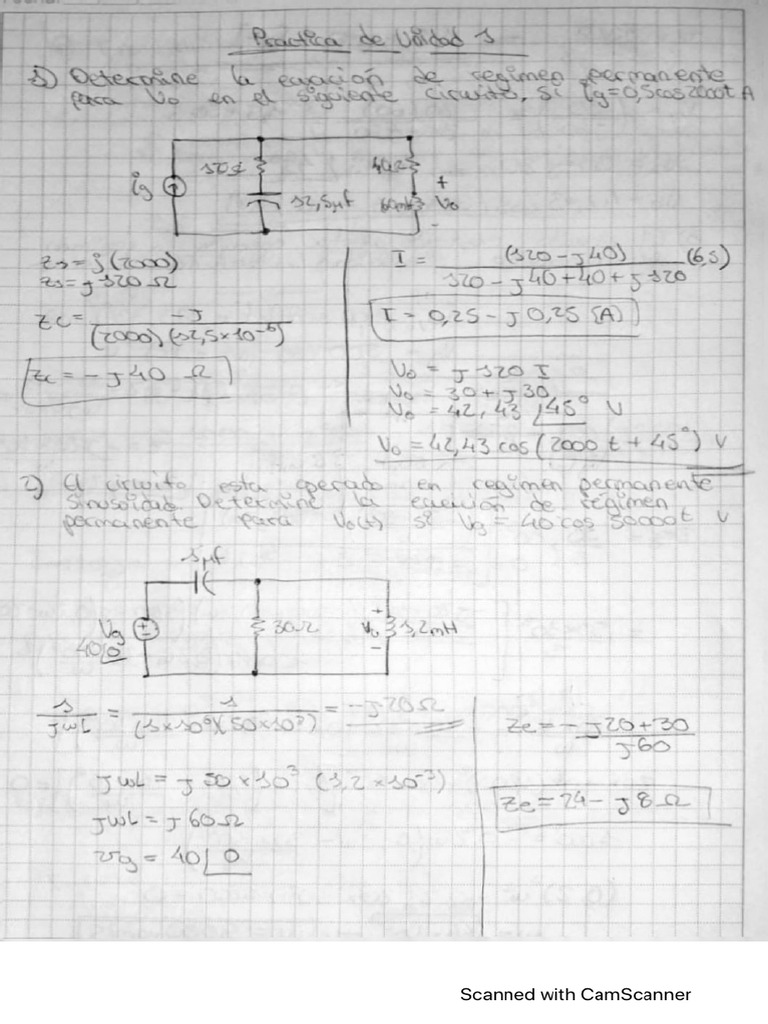 Practica de Unidad 1
1) Determine la ecuación de regimen permanente
para Vo en el siguiente circuito, si ig=0,5cos2000t A
120Ω
40Ω
ig
12,5μf
60mH
+
Vo
-
Zs = j(2000)
Zs = j 120 Ω
Zc = -J
(2000)(12,5x10⁻⁶)
Zc = -J 40 Ω
I = (120 - J40) (0,5)
120 - J40+40+J120
I = 0,25 - J 0,25 (A)
Vo = J 120 I
Vo = 30 + J30
Vo = 42,43 |45° V
Vo = 42,43 cos(2000 t + 45°) V
2) El circuito esta operado en regimen permanente
sinusoidal. Determine la ecuación de regimen
permanente para Vo(t) si Vg = 40 cos 50000t V
1μf
Vg
40|0
30Ω
+
Vo
-
1,2mH
1
JωL
= 1
(1x10⁶)(50x10³)
= -J20Ω
JωL = J 50 x10³ (1,2 x10⁻³)
JωL = J60Ω
Vg = 40|0
Ze = -J20+30
J60
Ze = 24 - J8Ω
Scanned with CamScanner